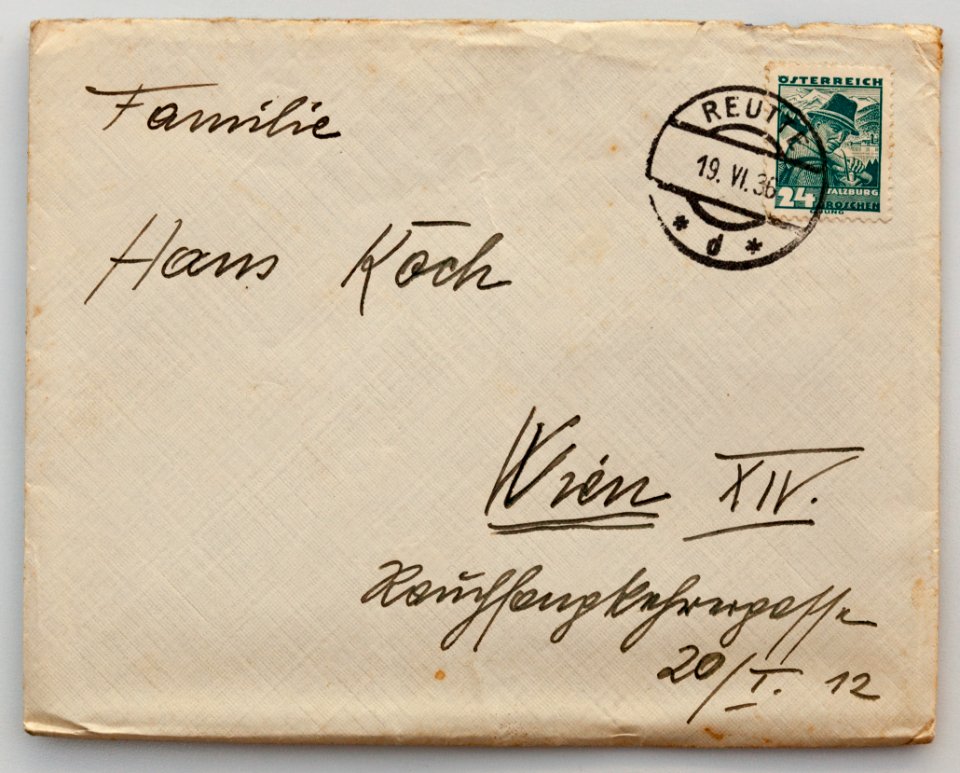 Familie
Hans Koch
Wien XIV.
Rauchfangkehrergasse
20/I. 12
REUTTE
19. VI. 36
* d *
ÖSTERREICH
SALZBURG
24 GROSCHEN